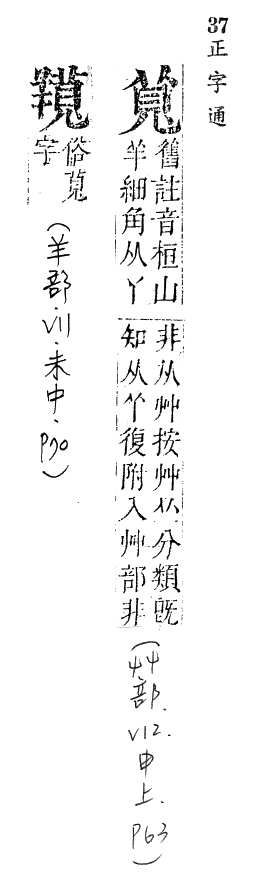 37 正字通
萈
舊註音桓山
羊細角从丫
非从艸按艸分類既
知从復附入艸部非
(艸部.V12.申上.P63)
俗萈
字
(羊部.VII.未中.P70)